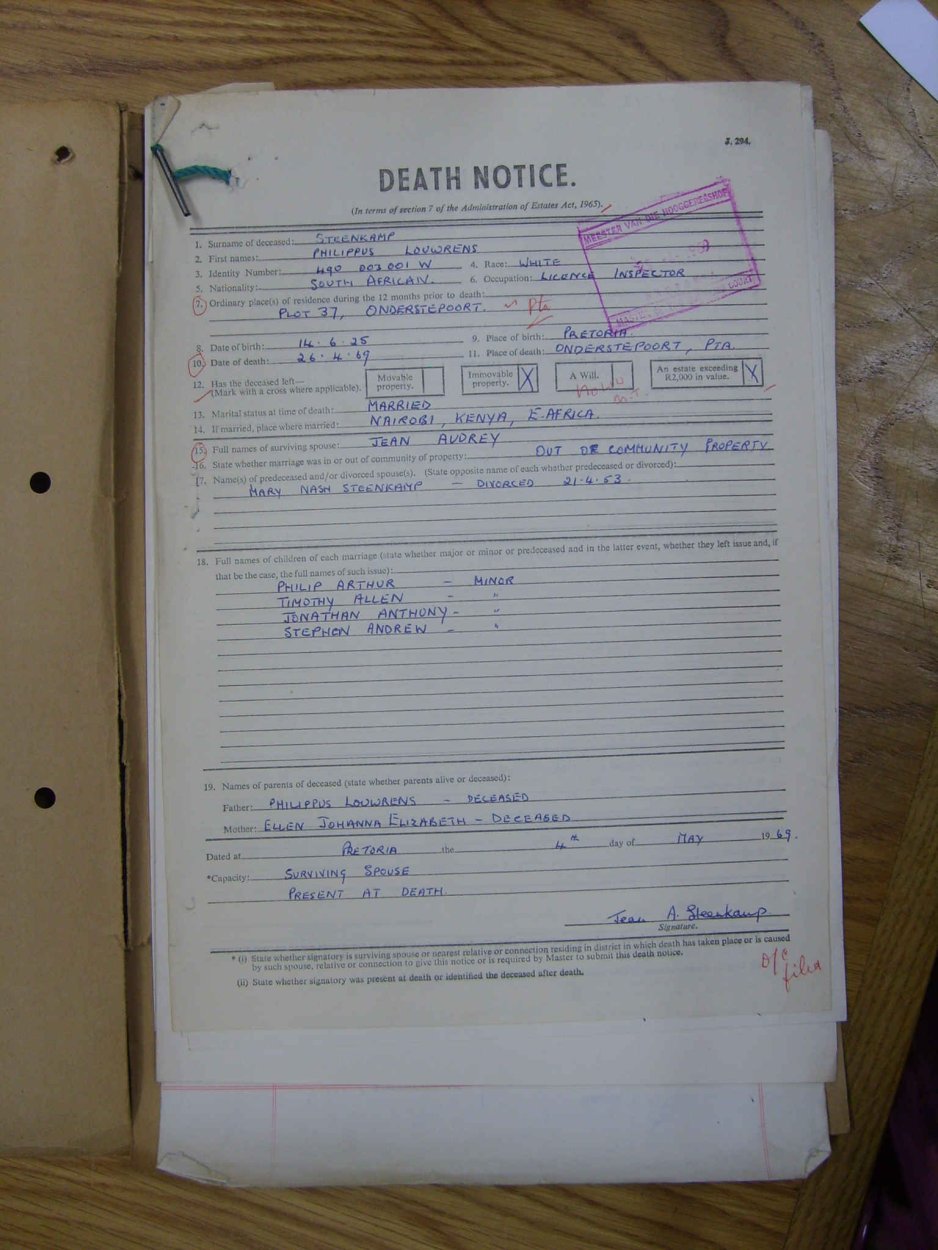 J. 294.
DEATH NOTICE.
(In terms of section 7 of the Administration of Estates Act, 1965).
MEESTER VAN DIE HOOGGEREGSHOF
COURT
1. Surname of deceased: STEENKAMP
2. First names: PHILIPPUS LOUWRENS
3. Identity Number: 490 003 001 W 4. Race: WHITE
5. Nationality: SOUTH AFRICAN. 6. Occupation: LICENCE INSPECTOR
7. Ordinary place(s) of residence during the 12 months prior to death:
PLOT 37, ONDERSTEPOORT. Pta
8. Date of birth: 14.6.25 9. Place of birth: PRETORIA.
10. Date of death: 26.4.69 11. Place of death: ONDERSTEPOORT, PTA.
12. Has the deceased left— (Mark with a cross where applicable). Movable property. Immovable property. X A Will. An estate exceeding R2,000 in value. X
13. Marital status at time of death: MARRIED
14. If married, place where married: NAIROBI, KENYA, E-AFRICA.
15. Full names of surviving spouse: JEAN AUDREY
16. State whether marriage was in or out of community of property: OUT OF COMMUNITY PROPERTY
17. Name(s) of predeceased and/or divorced spouse(s). (State opposite name of each whether predeceased or divorced):
MARY NASH STEENKAMP — DIVORCED 21.4.53.
18. Full names of children of each marriage (state whether major or minor or predeceased and in the latter event, whether they left issue and, if
that be the case, the full names of such issue):
PHILIP ARTHUR — MINOR
TIMOTHY ALLEN — "
JONATHAN ANTHONY - "
STEPHEN ANDREW — "
19. Names of parents of deceased (state whether parents alive or deceased):
Father: PHILIPPUS LOUWRENS — DECEASED
Mother: ELLEN JOHANNA ELIZABETH — DECEASED
Dated at PRETORIA the 4th day of MAY 1969.
*Capacity: SURVIVING SPOUSE
PRESENT AT DEATH.
Jean A. Steenkamp
Signature.
* (i) State whether signatory is surviving spouse or nearest relative or connection residing in district in which death has taken place or is caused
by such spouse, relative or connection to give this notice or is required by Master to submit this death notice.
(ii) State whether signatory was present at death or identified the deceased after death.
D/C
filed